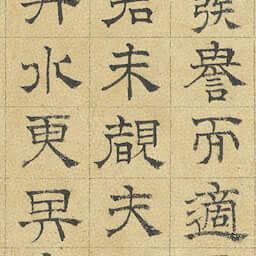 譽而適
若未覩夫
水更